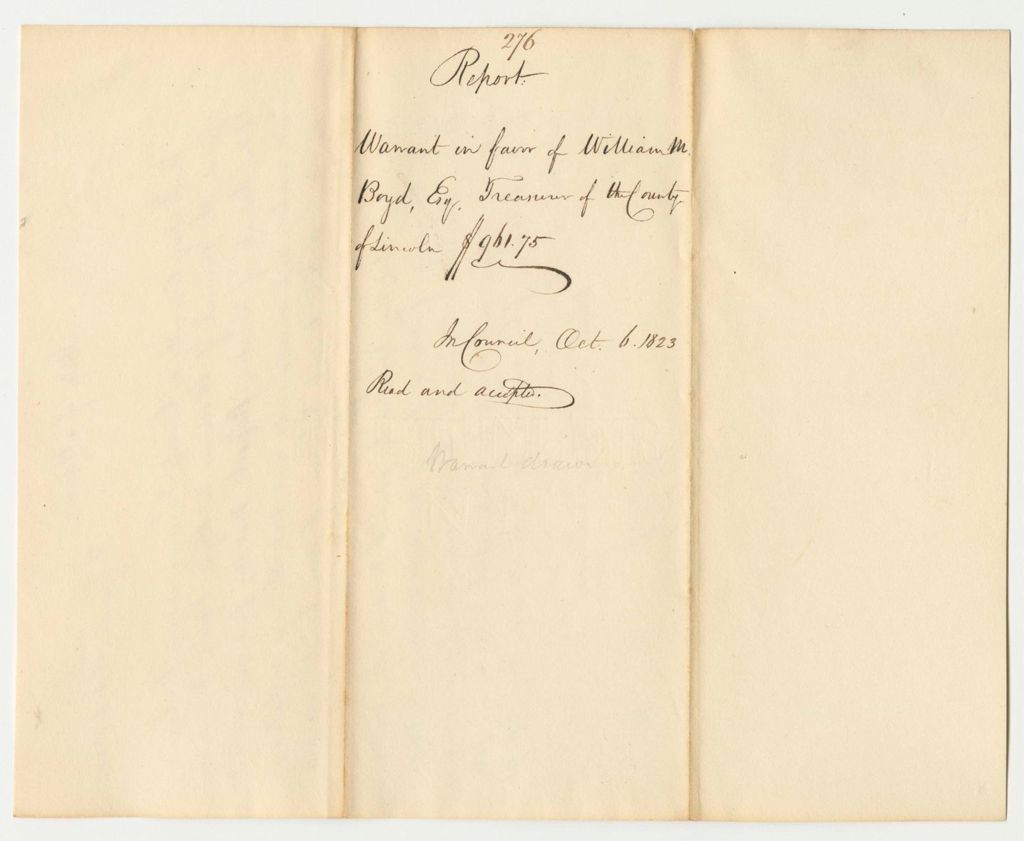 276
Report.
Warrant in favor of William M.
Boyd, Esq. Treasurer of the County
of Lincoln $961.75
In Council, Oct. 6. 1823
Read and accepted.
Warrant drawn